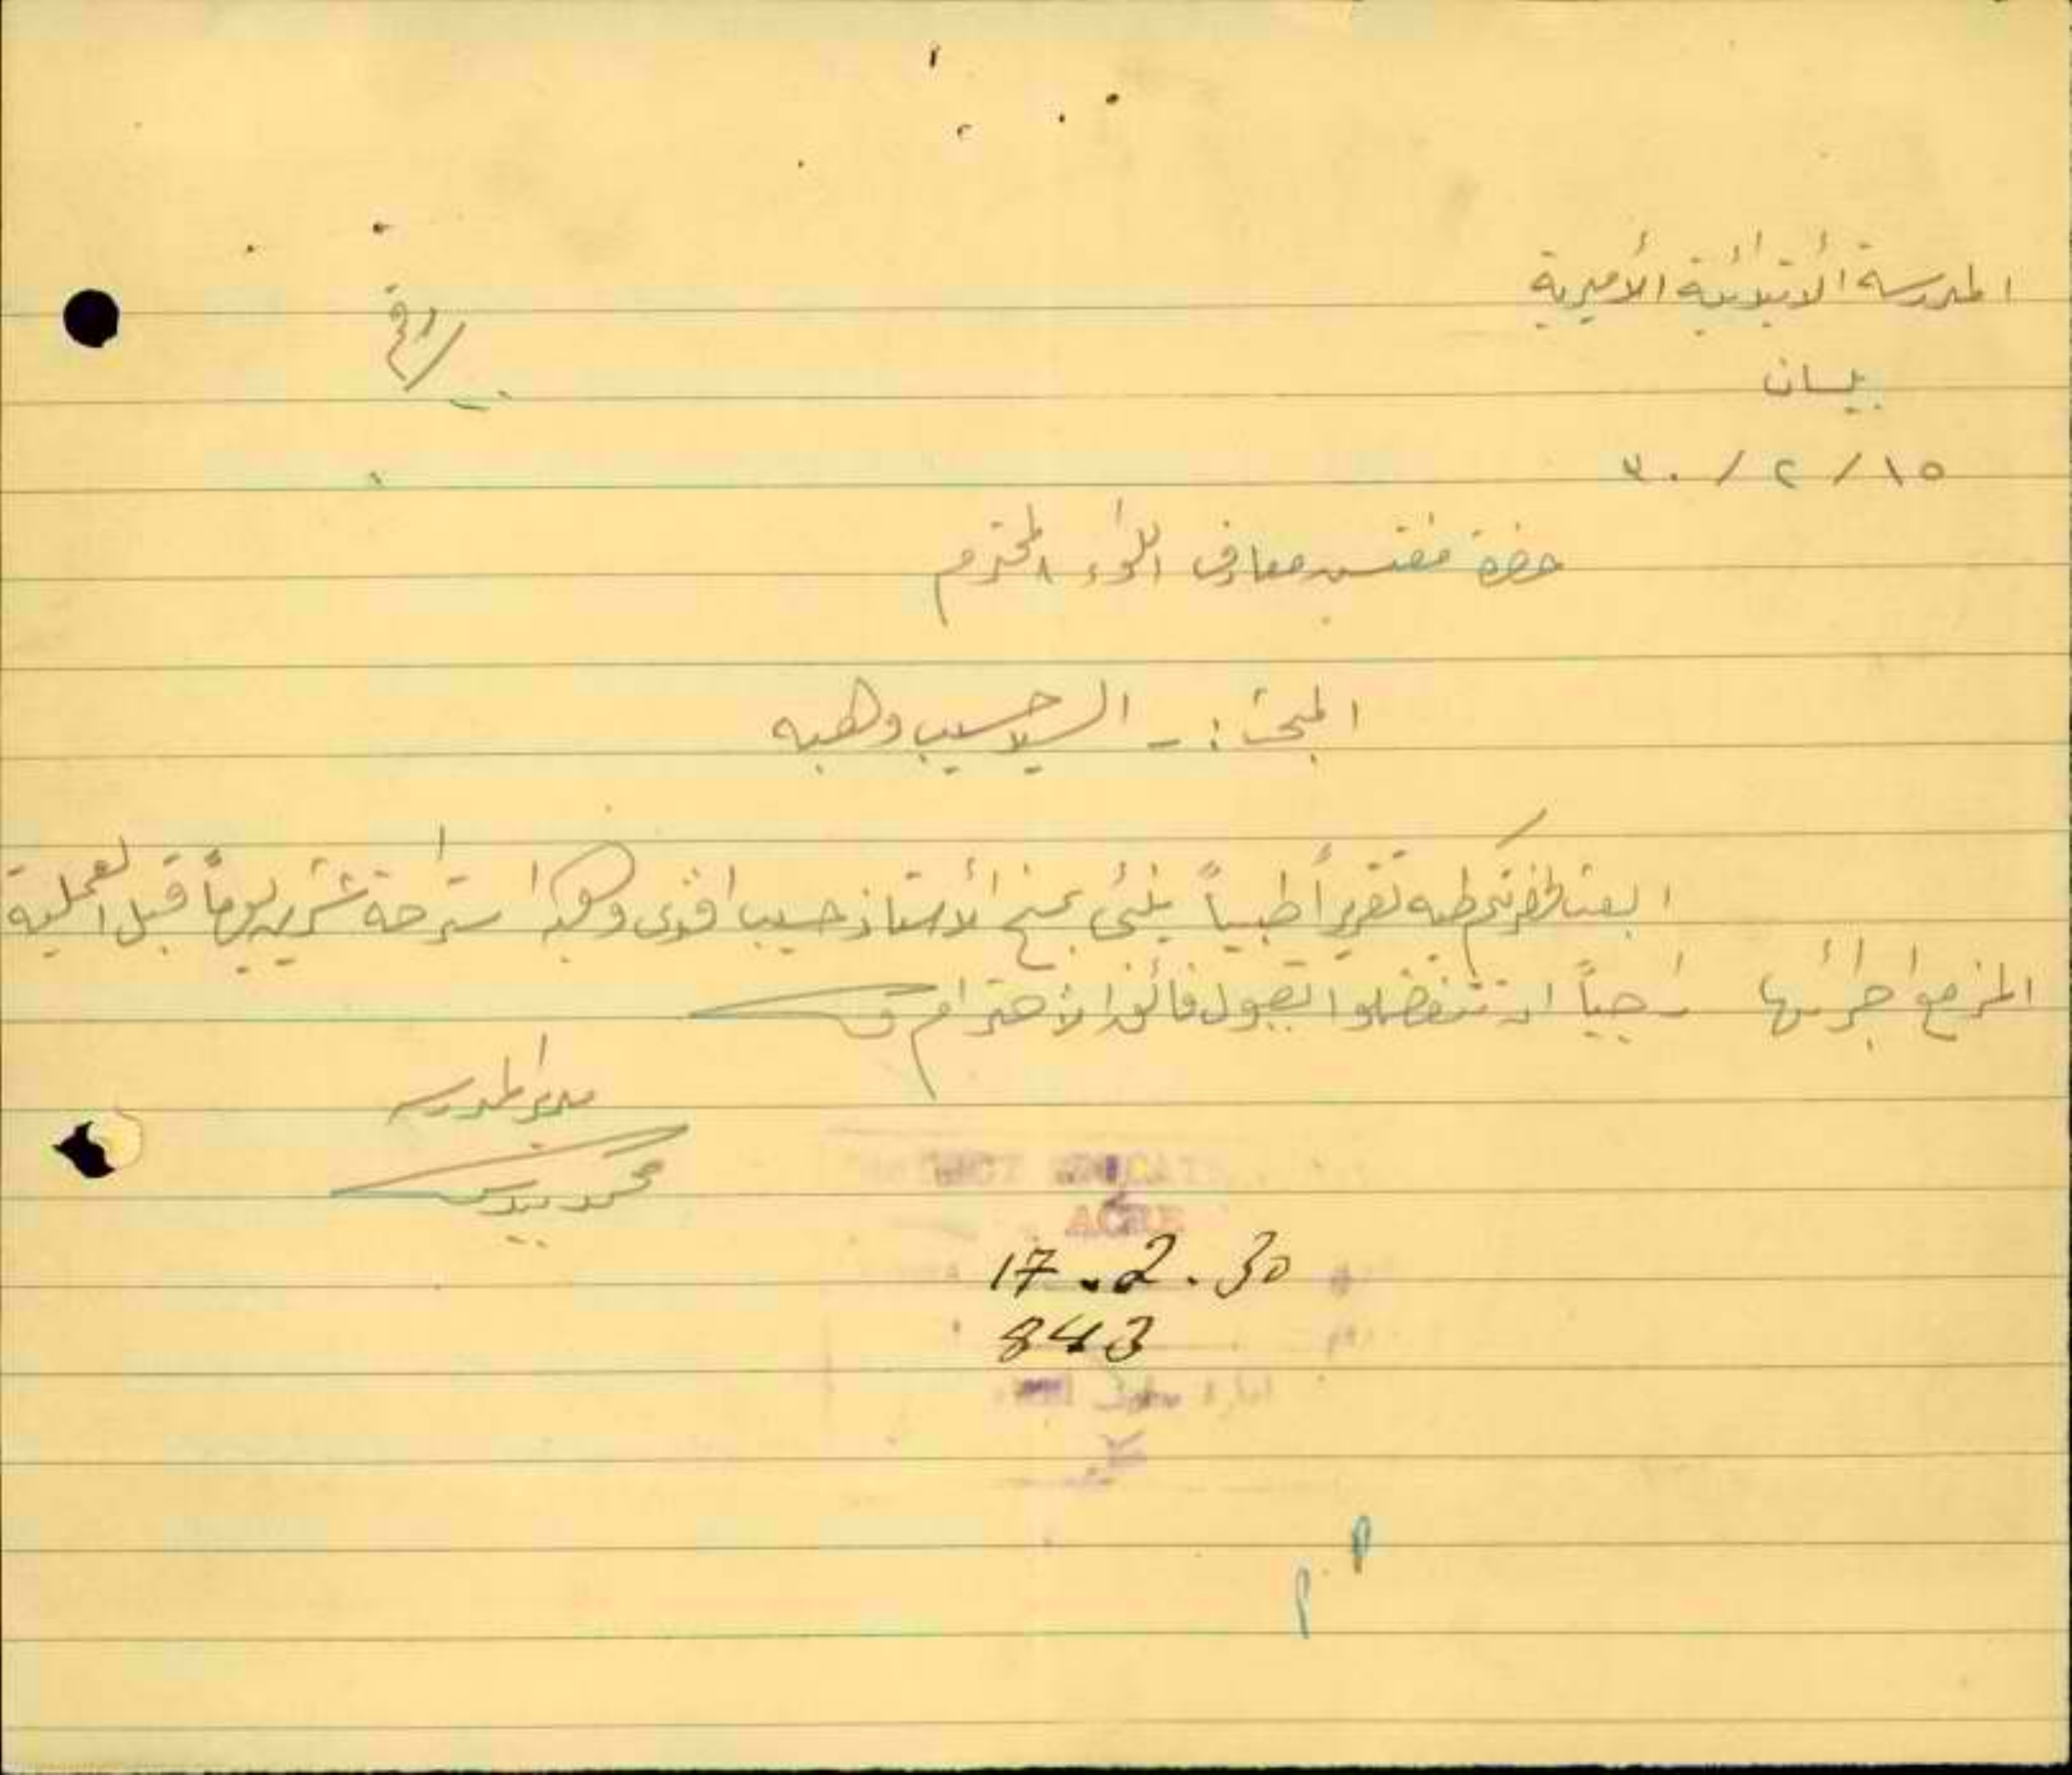 المدرسة الأبتدائية الأميرية
رقم
بيسان
١٥/٢/٣٠
حضرة مفتش معارف اللواء المحترم
المبحث :- السيد حسيب وهبه
ابعث لحضرتكم طيه تقريراً طبياً ينبئ بمنح الأستاذ حسيب افندي وهبه استراحة عشرين يوماً قبل العملية
المزمع اجرائها راجياً ان تتفضلوا بقبول فائق الأحترام
مدير المدرسه
محمد بيدس
ACRE
17.2.30
843
ادارة معارف
عكا